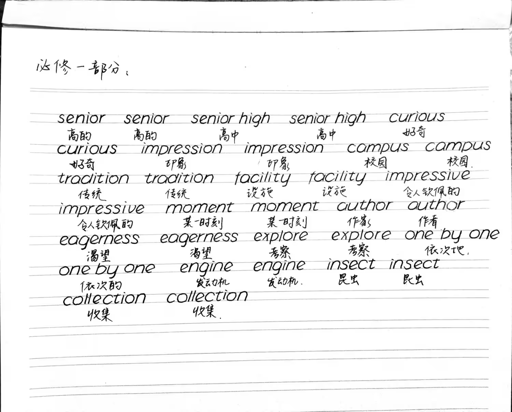 必修一部分。
senior senior senior high senior high curious
高的 高的 高中 高中 好奇
curious impression impression campus campus
好奇 印象 印象 校园 校园.
tradition tradition facility facility impressive
传统 传统 设施 设施 令人钦佩的
impressive moment moment author author
令人钦佩的 某一时刻 某一时刻 作者 作者
eagerness eagerness explore explore one by one
渴望 渴望 考察 考察 依次地.
one by one engine engine insect insect
依次的 发动机 发动机. 昆虫 昆虫
collection collection
收集 收集.